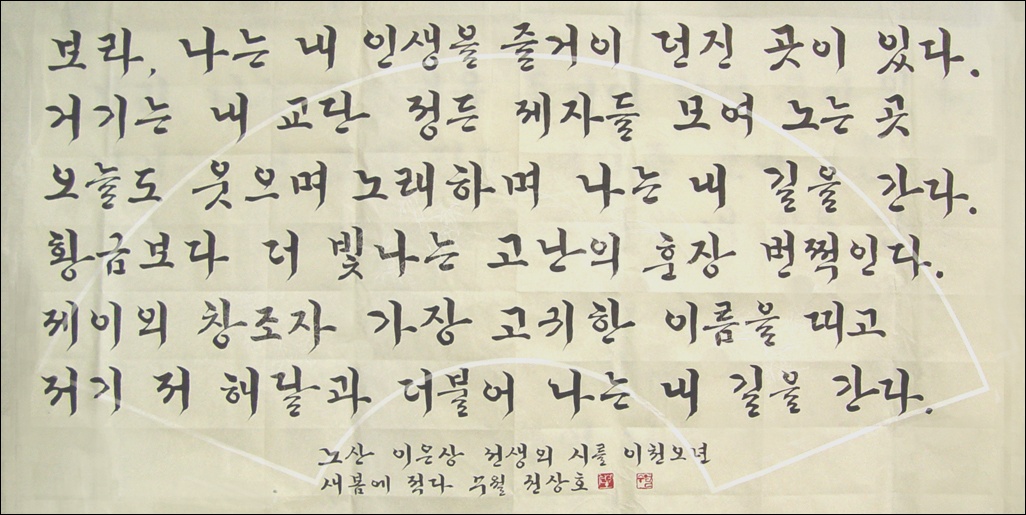 보라, 나는 내 인생을 즐거이 던진 곳이 있다.
거기는 내 교단 정든 제자들 모여 노는 곳
오늘도 웃으며 노래하며 나는 내 길을 간다.
황금보다 더 빛나는 고난의 훈장 번쩍인다.
제이의 창조자 가장 고귀한 이름을 띠고
저기 저 해 달과 더불어 나는 내 길을 간다.
노산 이은상 선생의 시를 이천오년
새봄에 적다 무월 전상호